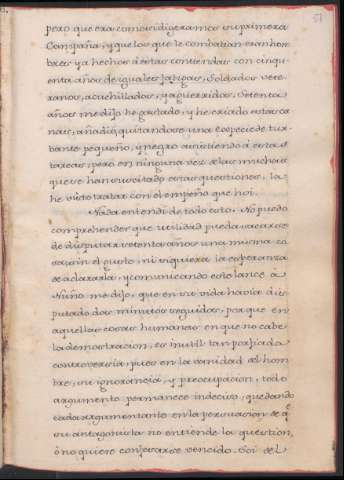 51
pero que era como si digeramos su primera
Campaña, y que los que le combatian eran hom
bres ya hechos á estas contiendas con cinqu
enta años de iguales fatigas, Soldados vete
ranos, acuchillados, y aguerridos. Setenta
años me dijo he gastado, y he criado estas ca
nas, añadió quitandose una especie de tur
bante pequeño, y negro asistiendo á estas
tareas, pero en ninguna vez de las muchas
que se han suscitado estas questiones, la
he visto tratar con el empeño que hoi.
Nada entendí de todo esto. No puedo
comprehender que utilidad pueda sacarse
de disputar setenta años una misma co
sa sin el gusto, ni siquiera la esperanza
de aclararla, y comunicando este lance á
Nuño me dijo, que en su vida havia dis
putado dos minutos seguidos, porque en
aquellas cosas humanas en que no cabe
la demostracion, es inutil tan porfiada
controversia, pues en la vanidad del hom
bre, su ignorancia, y preocupacion, todo
argumento permanece indeciso, quedando
cada argumentante en la persuasion de q.e
su antagonista no entiende la question,
ó no quiere confesarse vencido. Soi del